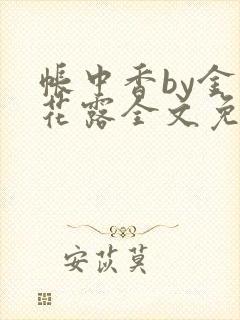 帳中香by金
花露全文免
安苡莫